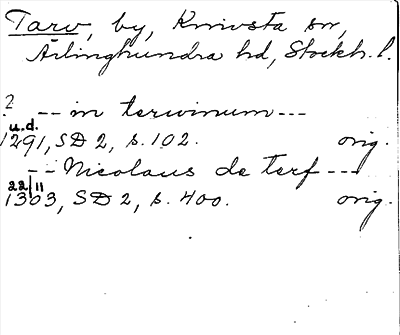 Tarv, by, Knivsta sn,
Ärlinghundra hd, Stockh. l.
? -- in terwinum ---
u.d.
1291, SD 2, s. 102. orig.
-- Nicolaus de Terf ---
22/11
1303, SD 2, s. 400. orig.